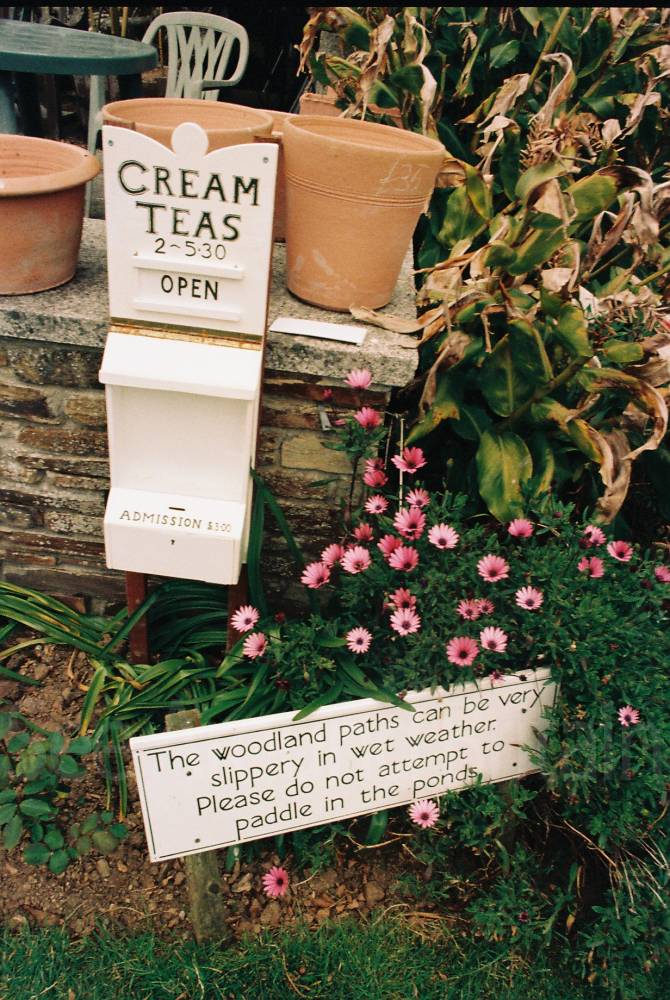 CREAM
TEAS
2~5·30
OPEN
ADMISSION £3:00
The woodland paths can be very
slippery in wet weather.
Please do not attempt to
paddle in the ponds.